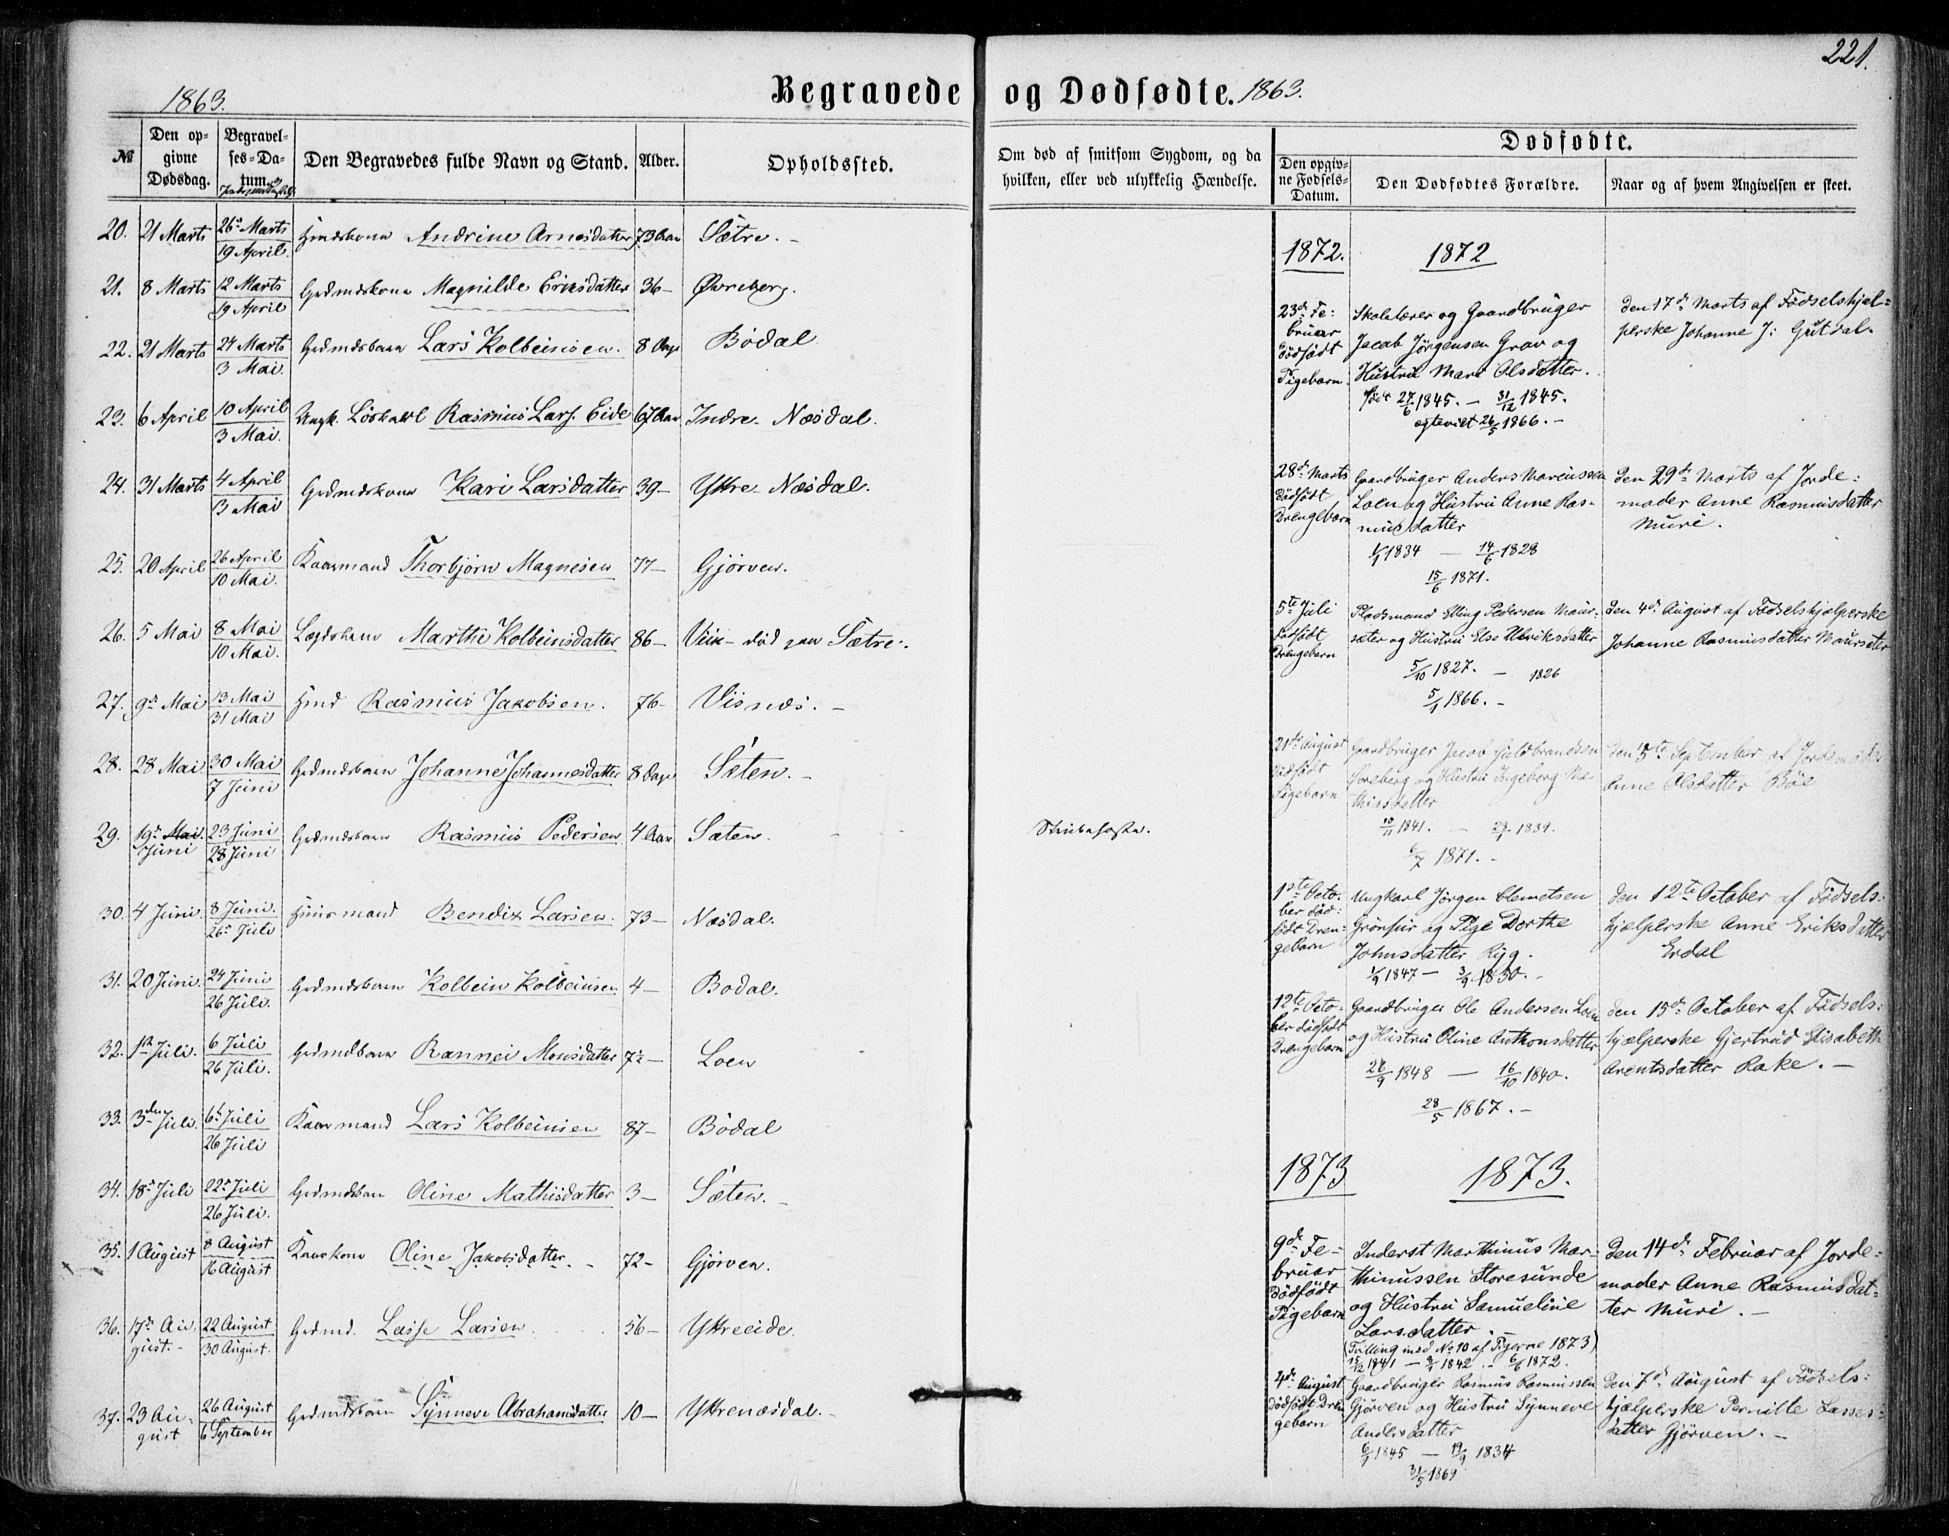 221.
1863.
Begravede og Dødfødte. 1863.
№
Den opgivne Dødsdag.
Begravelses-Datum.
Den Begravedes fulde Navn og Stand.
Alder.
Opholdssted.
Om død af smitsom Sygdom, og da hvilken, eller ved ulykkelig Hændelse.
Dødfødte.
Den opgivne Fødsels-Datum.
Den Dødfødtes Forældre.
Naar og af hvem Angivelsen er skeet.
20. 21 Marts 26de Marts 19 April. Andrine Arnesdatter 73 Aar Sætre. -
21. 8 Marts 12 Marts 19 April Grdmdskone Magnilde Eriksdatter 36 - Øvreberg.
22. 21 Marts 24 Marts 3 Mai. Grdmdsbarn Lars Kolbeinsen. 8 Dage Bødal
23. 6 April 10 April 3 Mai. Ungk. Løskarl Rasmus Lars. Eide 67 Aar Indre Næsdal.
24. 31 Marts 4 April 3 Mai Grdmdskone Kari Larsdatter 39 - Yttre Næsdal.
25. 20 April 26 April 10 Mai. Kaarmand Thorbjørn Magnesen 77 - Gjørven.
26. 5 Mai 8 Mai 10 Mai. Lægdskone Marthe Kolbeinsdatter 86 - Viik - død paa Sætre.
27. 9de Mai 13 Mai 31 Mai Rasmus Jakobsen. 76 - Visnæs. -
28. 28 Mai 30 Mai 7 Juni Grdmdsbarn Johanne Johannesdatter 8 Dage Sæten. -
29. 19de Mai Juni 23 Juni 28 Juni Grdmdsbarn Rasmus Pedersen 4 Aar Sæten. Strubehoste.
30. 4 Juni. 8 Juni. 26de Juli Huusmand Bendix Larsen. 73 - Næsdal.
31. 20 Juni. 24 Juni 26 Juli. Grdmdsbarn Kolbein Kolbeinsen 4 - Bødal.
32. 1ste Juli. 6 Juli 26 Juli. Grdmdbarn Rannei Monsdatter 7½ - Loen
33. 3den Juli. 6te Juli 26 Juli Kaarmand Lars Kolbeinsen 87 - Bødal
34. 18de Juli 22de Juli 26 Juli. Grdmdsbarn Oline Mathisdatter 3 - Sæten. -
35. 1 August 8 August 16 August Kaarkone Oline Jakobsdatter. - 72 - Gjørven.
36. 17de August. - 22 August 30 August. Grdmd. Lasse Larsen 56 - Yttreeide.
37. 23 August 26 August 6 September Grdmdsbarn Synneve Abrahamsdatter 10 - Yttrenæsdal. -
1872. 1872
23de Februar dødfødt Pigebarn.
Skolelærer og Gaardbruger
Jacob Jørgensen Grov og
Hustru Mari Olsdatter.
født 27/6 1845. - 31/12 1845.
ægteviet 26/5 1866. -
den 17de Marts af Fødselshjel-
perske Johanne J: Gutdal.
28de Marts dødfødt Drengebarn
Gaardbruger Anders Marcussen
Loen og Hustru Anne Ras-
musdatter
1/1 1834 - 14/6 1828
15/6 1871.
den 29de Marts af Jorde:
moder Anne Rasmusdatter
Muri.
5te Juli dødfødt Drengebarn
Pladsmand Elling Pedersen Maur-
sæter og Hustru Else Henriksdatter
5/10 1827. - 1826
5/1 1866. -
den 4de August af Fødselshjelperske
Johanne Rasmusdatter Maursæter
21de August dødfødt Pigebarn
Gaardbruger Jacob Guldbrandsen
og Hustru Ingeborg Ma-
thisdatter
10/11 1841. - 29/1 1839.
6/7 1871. -
den 15te September af Jordemoder
Anne Olsdatter Bøe
1ste October dødfødt Drengebarn
Ungkarl Jørgen Clemetsen
og Pige Dorthe
Johnsdatter Ryg.
1/9 1847 - 3/9 1850. -
den 12te October af Fødsels-
hjelperske Anne Eriksdatter
Erdal
12te October dødfødt Drengebarn
Gaardbruger Ole Andersen Loen
og Hustru Oline Anthonsdatter
28/9 1848 - 16/10 1840.
28/5 1867. -
den 15de October af Fødsels:
hjelperske Gjertrud Elisabeth
Arentsdatter Rake. -
1873 1873.
9de Februar dødfødt Pigebarn
Inderst Marthinus Mar-
thinussen Storesunde
og Hustru Samueline
Larsdatter.
(Tvilling med No 10 af Pigerne 1873)
15/12 1841 - 3/1 1842. - 6/6 1872.
den 14de Februar af Jorde-
moder Anne Rasmusdat-
ter Muri. -
4de August dødfødt Drengebarn
Gaardbruger Rasmus Rasmussen
Gjørven og Hustru Synneve
Andersdatter
6/1 1845 - 19/9 1834
31/5 1869
den 7de August af Fødsels:
hjelperske Pernille Lasses-
datter Gjørven. -